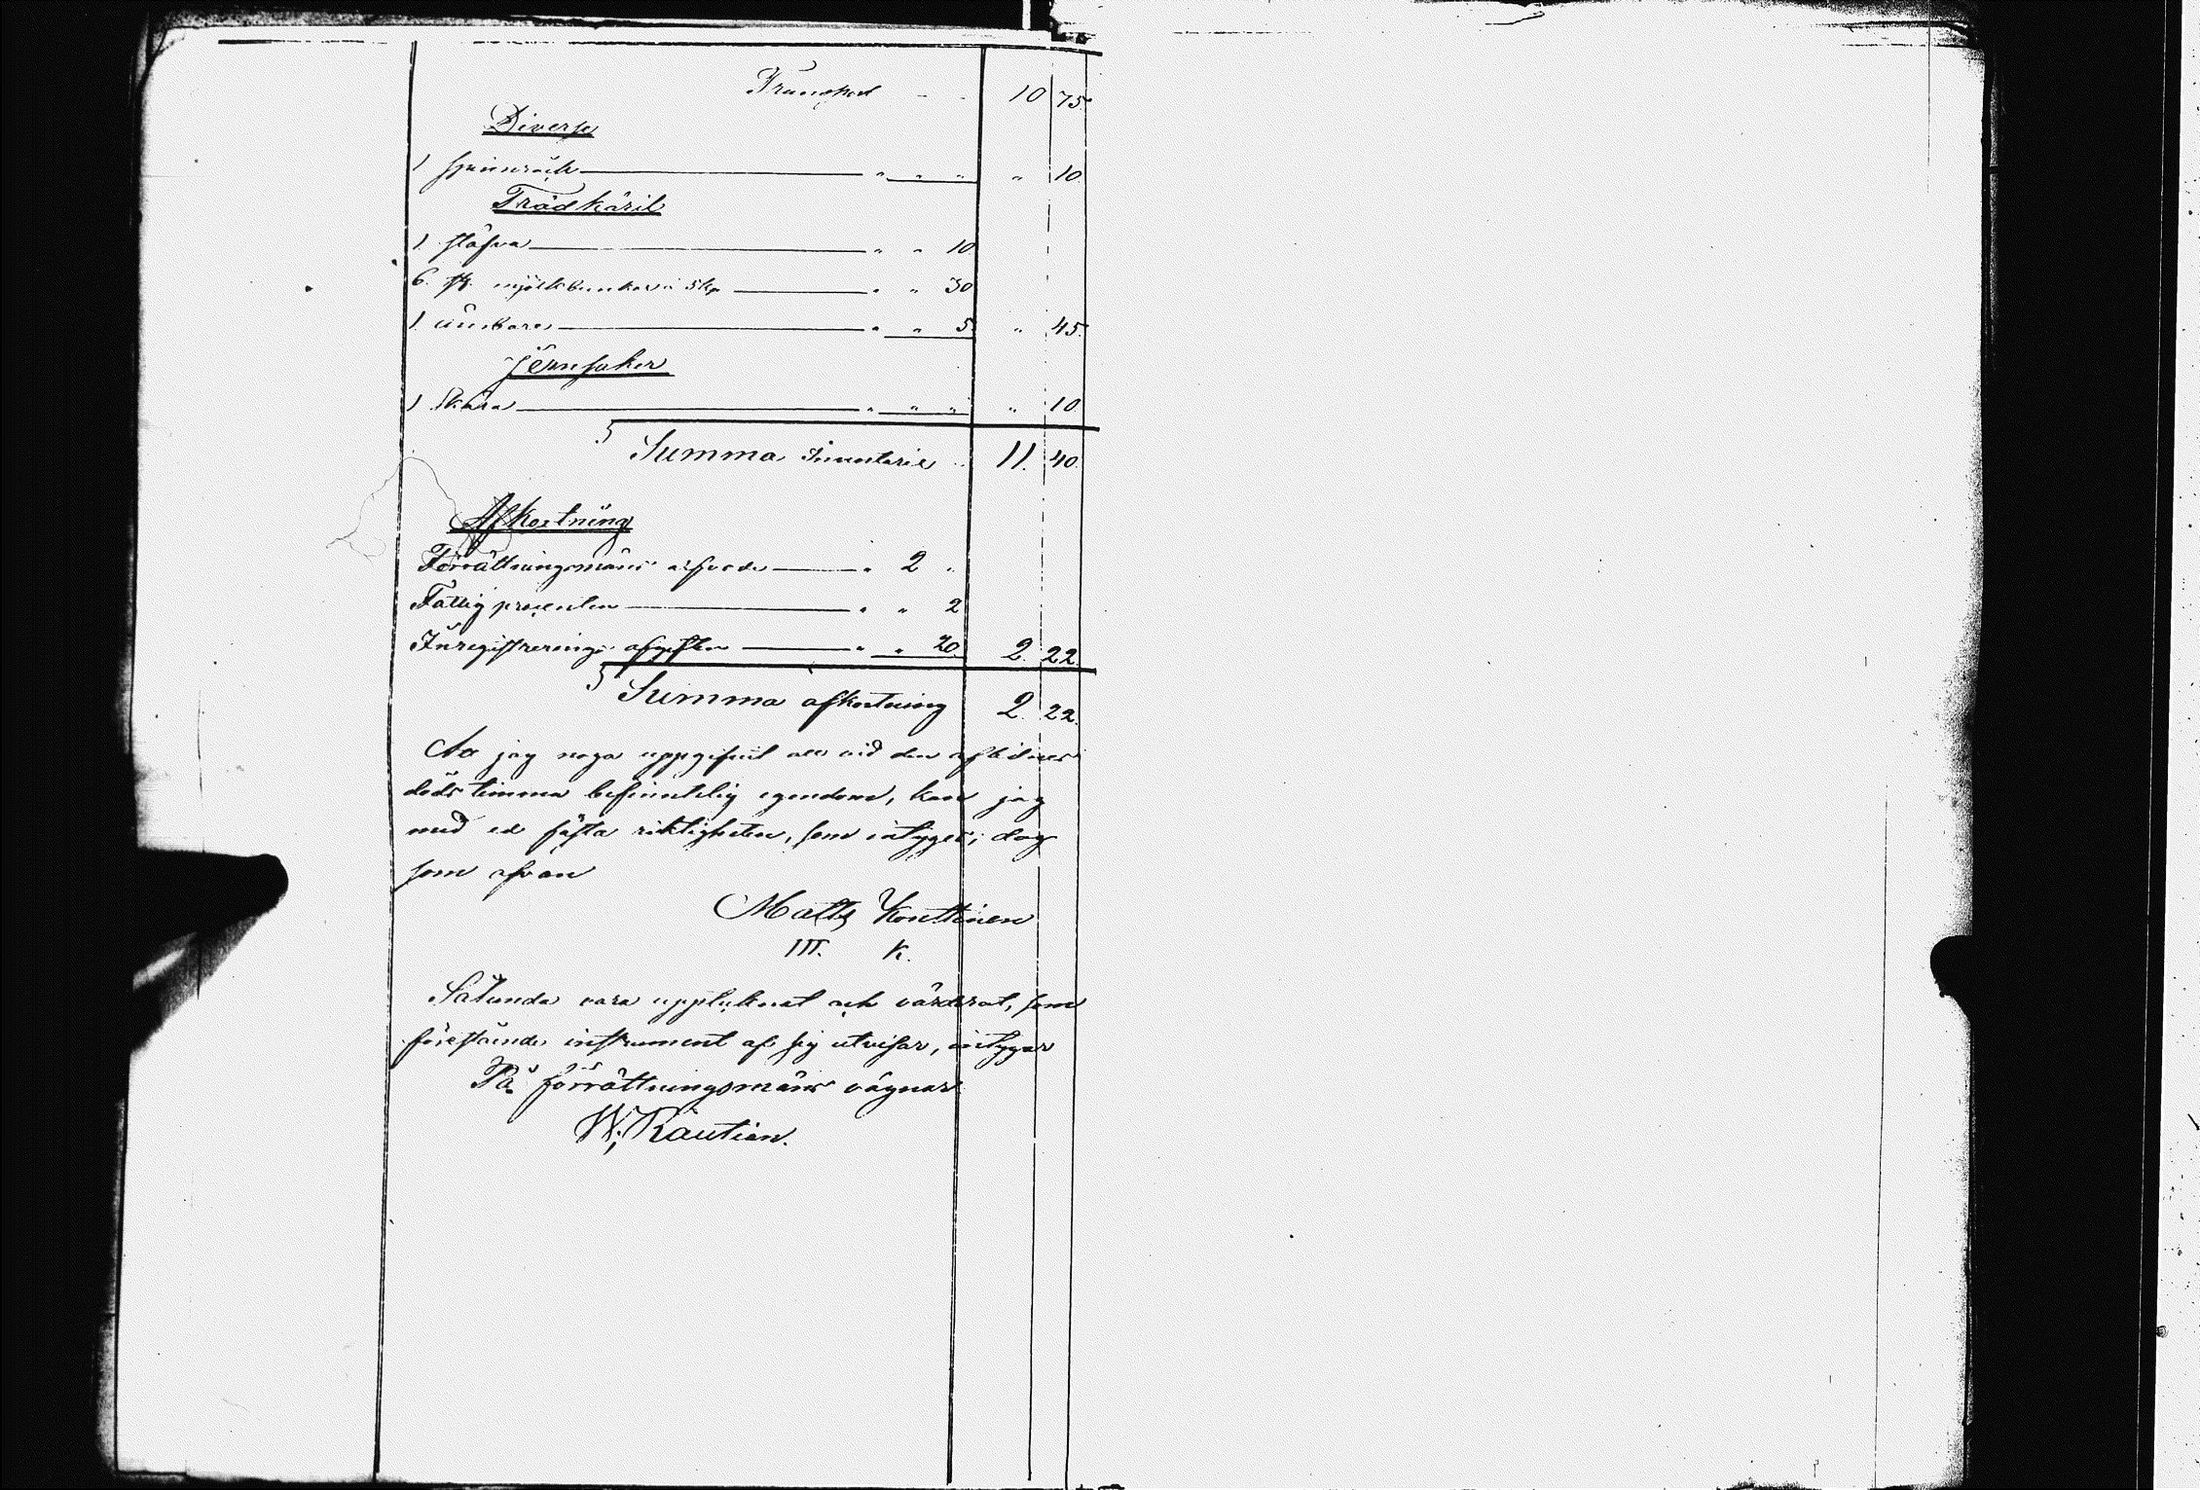 Transport - - 10 75.
Diverse
1 spinnråck " " " " 10.
Trädkäril
1 stäfva " " 10
6. st. mjölkbunkar à 5 kp " " 30
1. ämbare " " 5 " 45.
Jernsaker
1 Skära " " " " 10.
Summa Inventarie 11. 40.
Afkortning
Förrättningsmäns arfvode " 2 "
Fattig procenten " " 2
Inregistrerings afgiften " " 20. 2. 22.
Summa afkortning 2. 22.
At jag noga uppgifvit all vid den aflidnes
dödstimma befinntelig egendom, kan jag
med ed fästa riktigheten, som intygas; dag
som ofvan
Matts Konttinen
III. K.
Sålunda vara upptecknat och värderat, som
förestående instrument af sig utvisar, intygar
På förrättningsmäns vägnar.
W. Rautian.